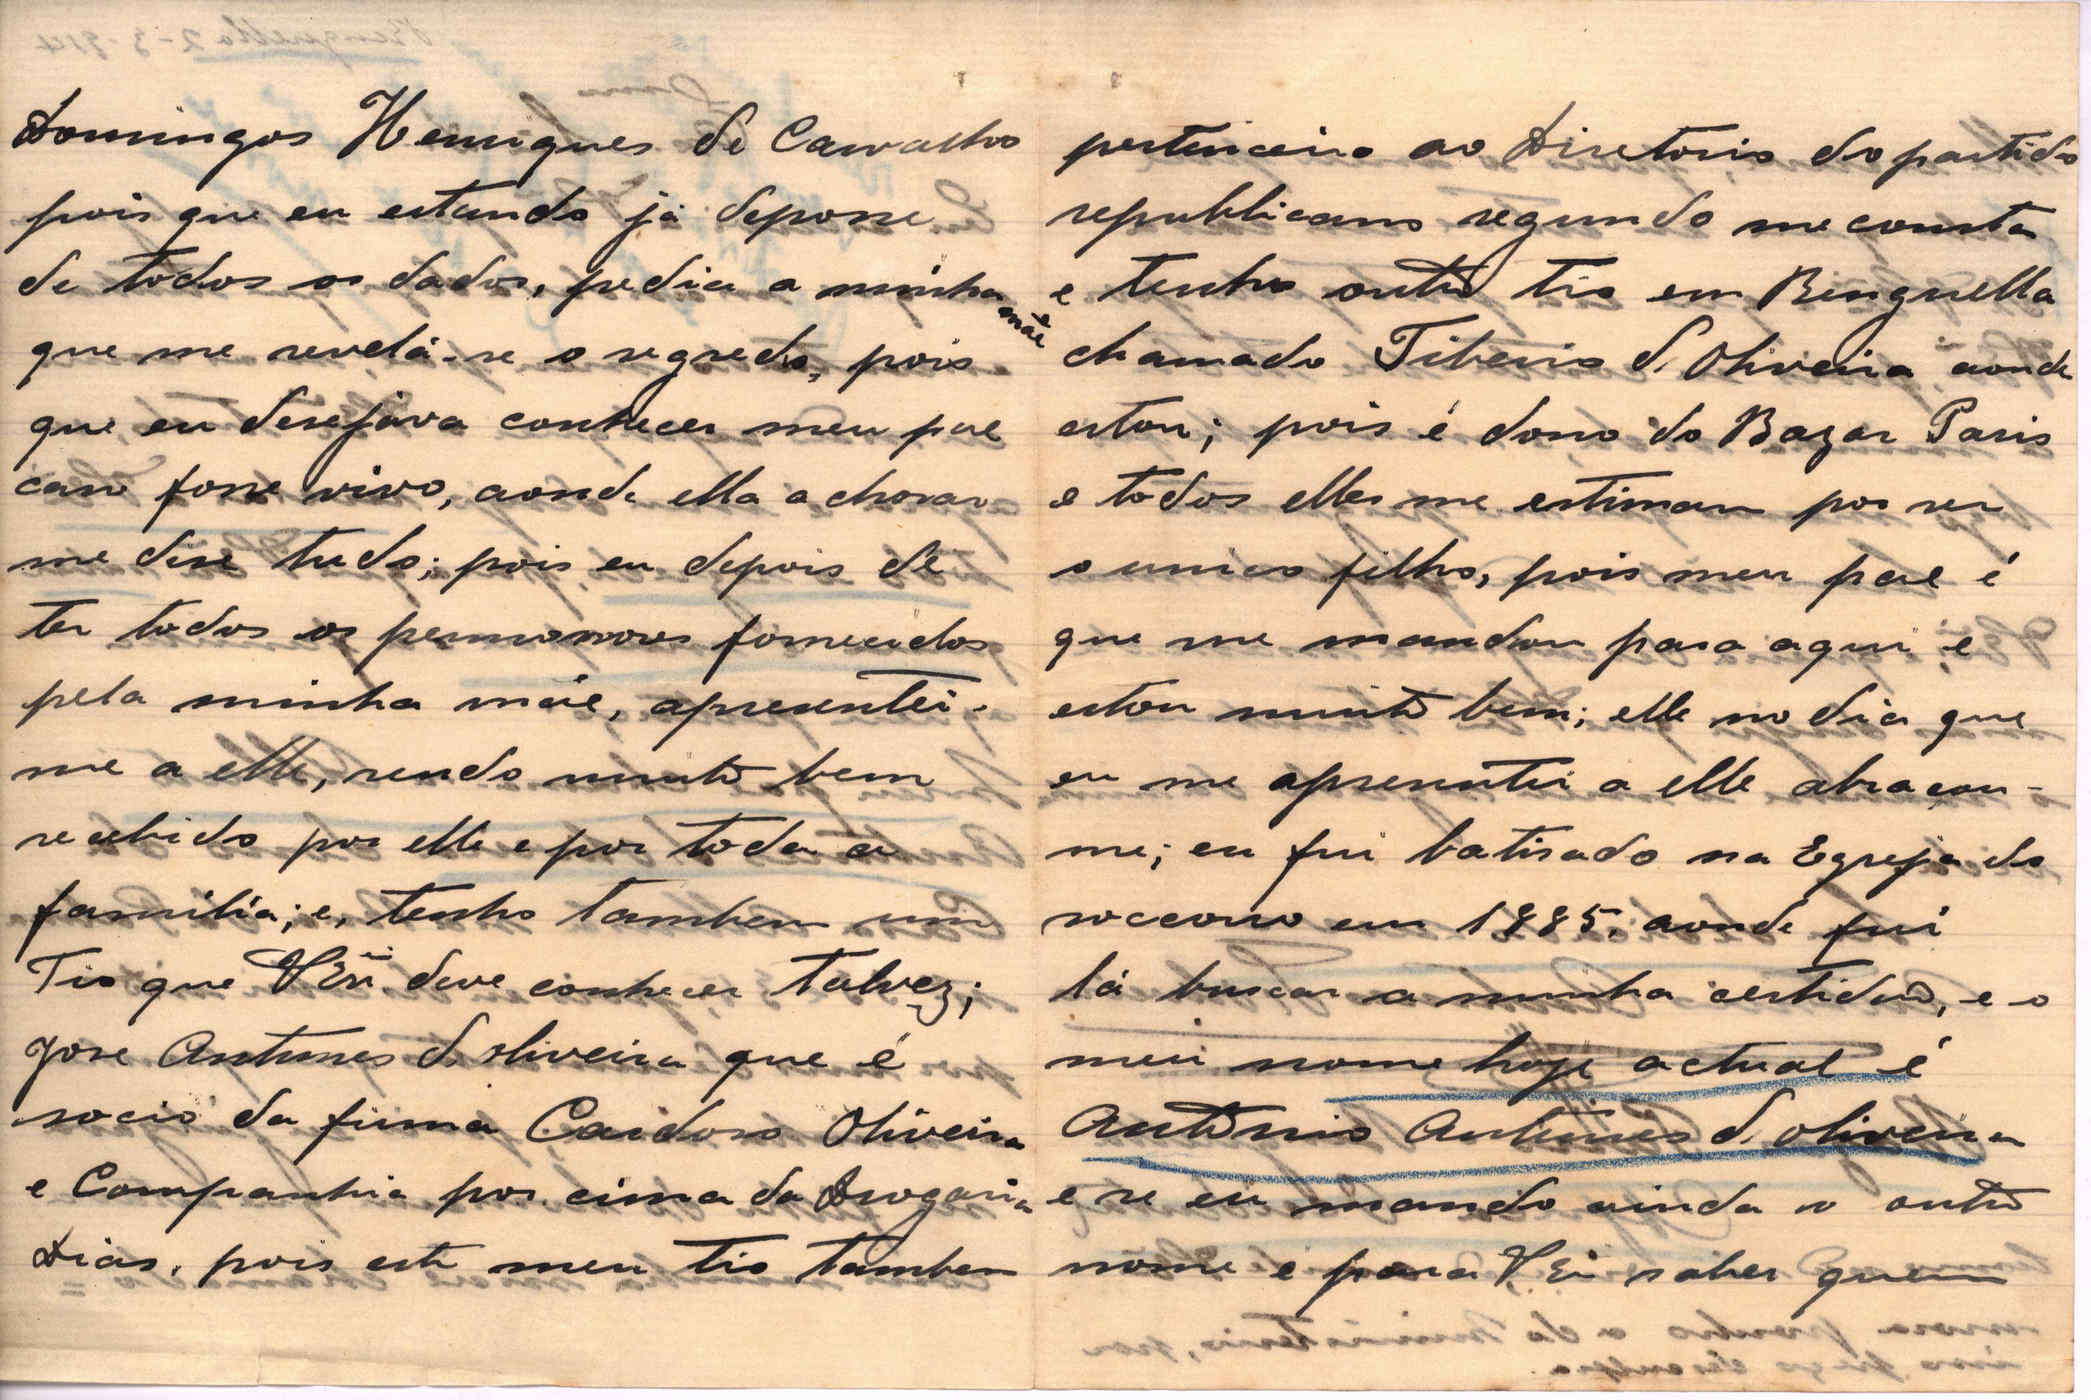 Domingos Henriques de Carvalho
pois que eu estando já deposse
de todos os dados, pedia a minha mãe
que me revelá-se o segredo, pois
que eu desejava conhecer meu pae
caso fosse vivo, aonde ella a chorar
me disse tudo; pois eu depois de
ter todos os fornecidos
pela minha mãe, apresentei-
me a elle, sendo muito bem
recebido por elle e por toda a
familia; e, tenho tambem um
Tio que VExª deve conhecer talvez;
Jose Antunes d'Oliveira que é
socio da firma Cardoso Oliveira
e Companhia por cima da Drogaria
Dias, pois este meu tio tambem
pertenceiro ao Diretorio do partido
republicano segundo me consta
e tenho outro tio em Benguella
chamado Tiberio d'Oliveira aonde
estou; pois é dono do Bazar Paris
e todos elles me estimam por ser
o unico filho, pois meu pae é
que me mandou para aqui e
estou muito bem; elle no dia que
eu me apresentei a elle abraçou-
me; eu fui batisado na Egreja do
soccorro em 1885, aonde fui
lá buscar a minha certidão, e o
meu nome hoje actual é
Antonio Antunes d'Oliveira
e se eu mando ainda o outro
nome e para VExª saber quem
Benguella 2-3-914